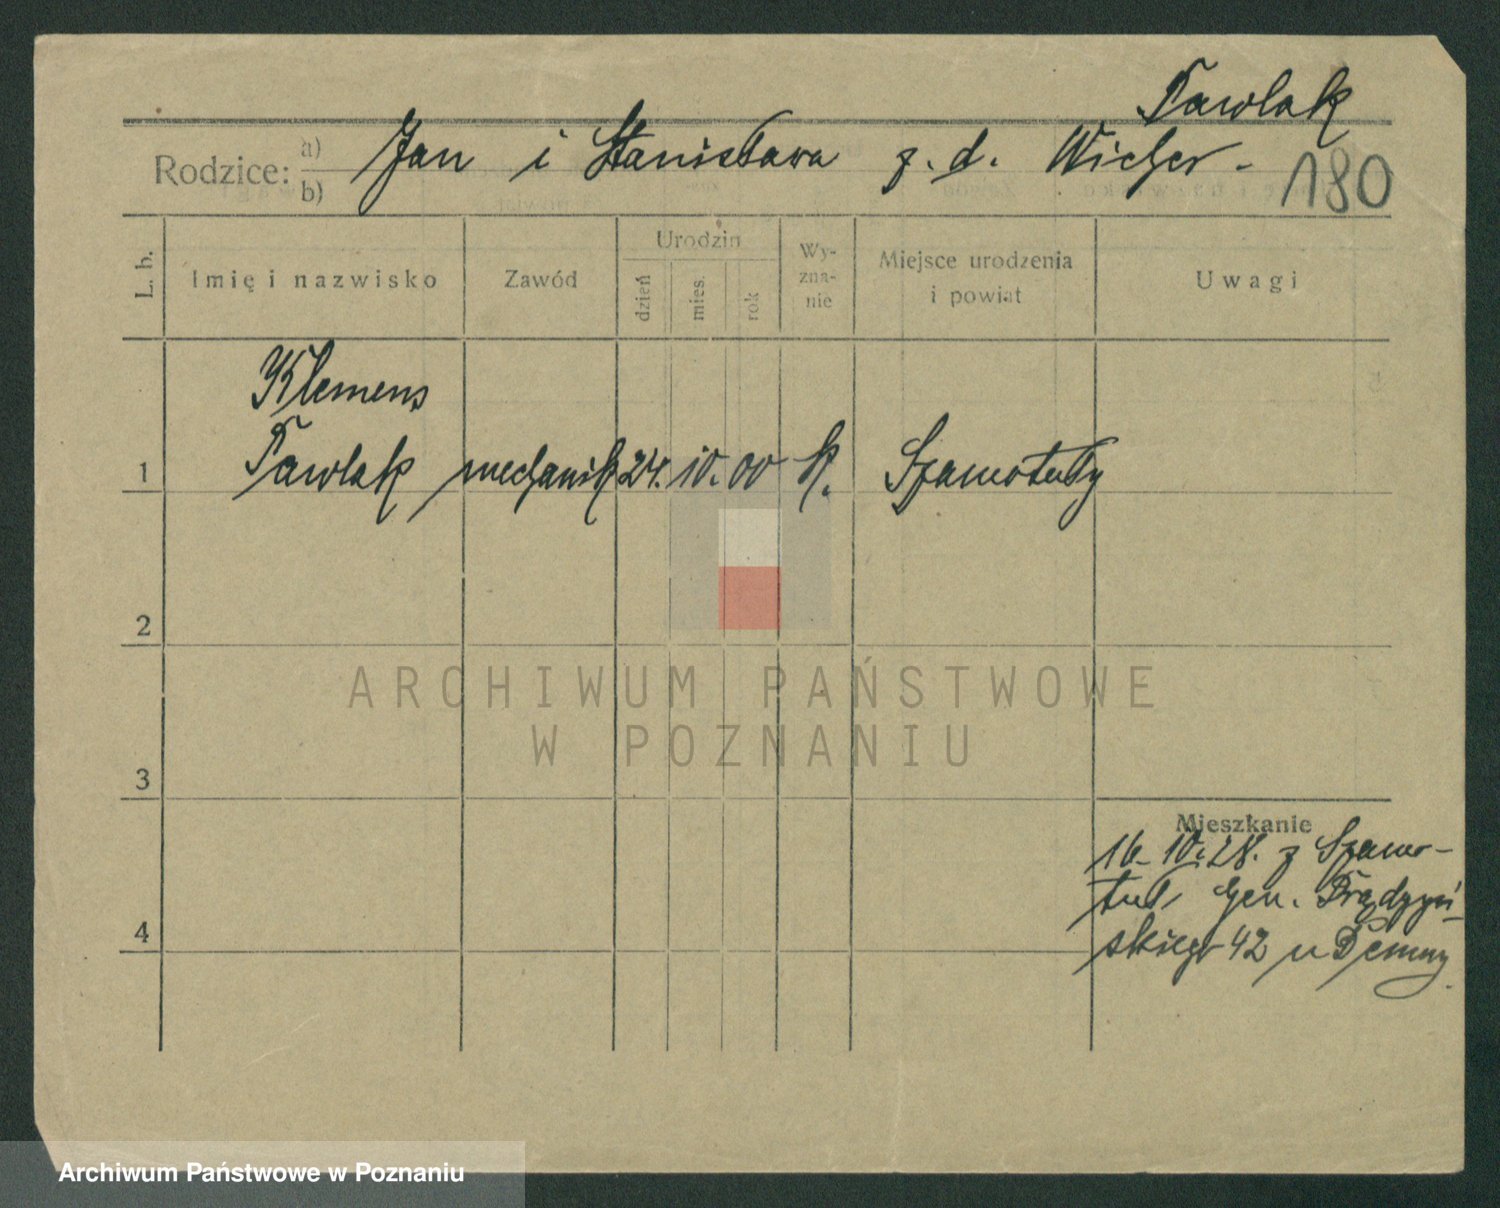 Pawlak
Rodzice: a) b) Jan i Stanisława z. d. Wicher - 180
L. b. Imię i nazwisko Zawód Urodzin dzień mies. rok Wy-zna-nie Miejsce urodzenia i powiat Uwagi
Klemens
1 Pawlak mechanik 24. 10. 00 k. Szamotuły
2
ARCHIWUM PAŃSTWOWE
W POZNANIU
3
Mieszkanie
16. 10. 28. z Szamo-
tuł, Gen. Prądzyń-
4 skiego 42 u Demny
Archiwum Państwowe w Poznaniu